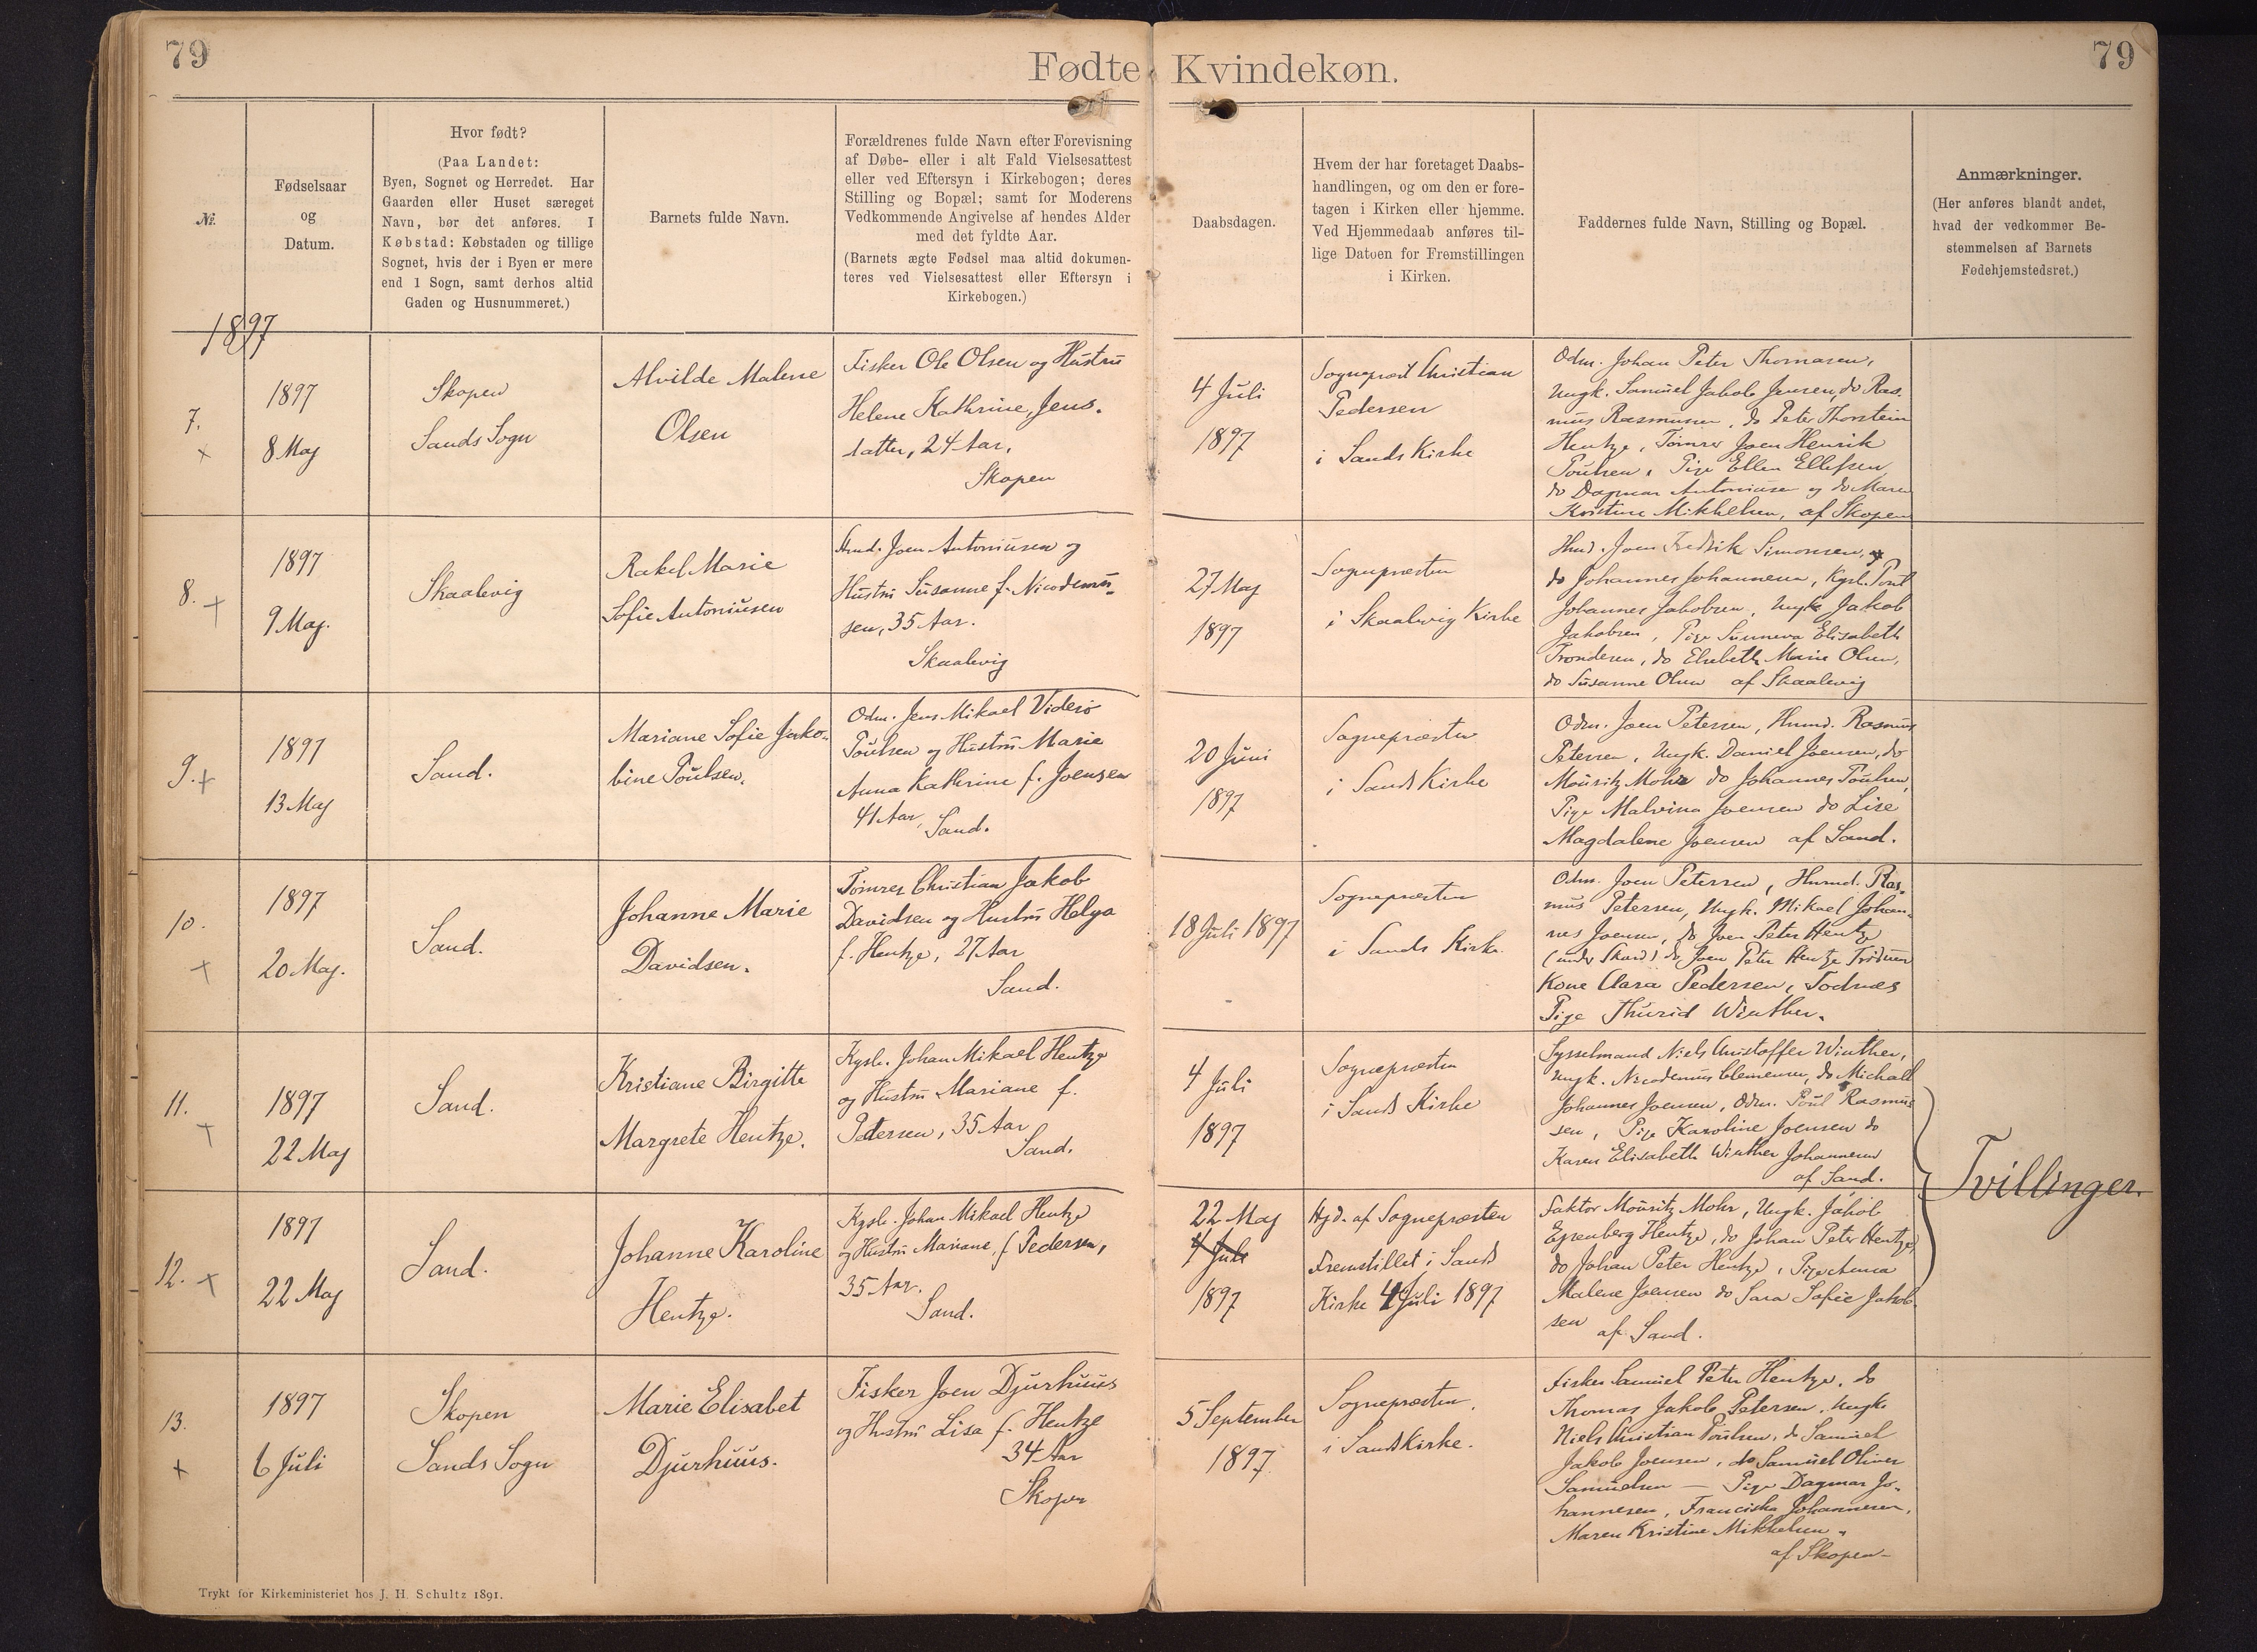 79
Fødte Kvindekøn.
79
Nr.
Fødselsaar
og
Datum.
Hvor født?
(Paa Landet:
Byen, Sognet og Herredet. Har
Gaarden eller Huset særeget
Navn, bør det anføres. I
Købstad: Købstaden og tillige
Sognet, hvis der i Byen er mere
end 1 Sogn, samt derhos altid
Gaden og Husnummeret.)
Barnets fulde Navn.
Forældrenes fulde Navn efter Forevisning
af Døbe- eller i alt Fald Vielsesattest
eller ved Eftersyn i Kirkebogen; deres
Stilling og Bopæl; samt for Moderens
Vedkommende Angivelse af hendes Alder
med det fyldte Aar.
(Barnets ægte Fødsel maa altid dokumen-
teres ved Vielsesattest eller Eftersyn i
Kirkebogen.)
Daabsdagen.
Hvem der har foretaget Daabs-
handlingen, og om den er fore-
tagen i Kirken eller hjemme.
Ved Hjemmedaab anføres til-
lige Datoen for Fremstillingen
i Kirken.
Faddernes fulde Navn, Stilling og Bopæl.
Anmærkninger.
(Her anføres blandt andet,
hvad der vedkommer Be-
stemmelsen af Barnets
Fødehjemstedsret.)
1897
7.
+
1897
8 Maj
Skopen
Sands Sogn
Alvilde Malene
Olsen
Fisker Ole Olsen og Hustru
Helene Kathrine, Jens-
datter, 24 Aar,
Skopen
4 Juli
1897
Sognepræst Christian
Pedersen
i Sands Kirke
Odm. Johan Peter Thomasen,
Ungk. Samuel Jakob Jensen, do Ras-
mus Rasmussen, do Peter Thorstein
Hentze, Tømrer Joen Henrik
Poulsen, Pige Ellen Ellefsen
do Dagmar Antoniusen og do Maren
Kristine Mikkelsen, af Skopen
8. +
1897
9 Maj.
Skaalevig
Rakel Marie
Sofie Antoniusen
Hmd. Joen Antoniusen og
Hustru Susanne f. Nicodemu-
sen, 35 Aar.
Skaalevig
27 Maj
1897
Sognepræsten
i Skaalevig Kirke
Hmd. Joen Fredrik Simonsen,
do Johannes Johannesen, Kgsb. Poul
Johannes Jakobsen, Ungk Jakob
Jakobsen, Pige Sunneva Elisabeth
Trondesen, do Elsebeth Marie Olsen,
do Susanne Olsen af Skaalevig
9. +
1897
13 Maj
Sand.
Mariane Sofie Jako-
bine Poulsen.
Odm. Jens Mikael Viderø
Poulsen og Hustru Marie
Anna Kathrine f. Joensen
41 Aar, Sand.
20 Juni
1897
Sognepræsten
i Sands Kirke
Odm. Joen Petersen, Husmd. Rasmus
Petersen, Ungk. Daniel Joensen, do
Mouritz Mohr do Johannes Poulsen,
Pige Malvina Joensen do Lise
Magdalene Joensen af Sand.
10.
+
1897
20 Maj.
Sand.
Johanne Marie
Davidsen.
Tømrer Christian Jakob
Davidsen og Hustru Helga
f. Hentze, 27 Aar
Sand.
18 Juli 1897
Sognepræsten
i Sands Kirke.
Odm. Joen Petersen, Husmd. Ras-
mus Petersen, Ungk. Mikael Johan-
nes Joensen, do Joen Peter Hentze
(under Skard) do Joen Peter Hentze
Kone Clara Pedersen, Todnæs
Pige Thurid Winther.
11.
+
1897
22 Maj
Sand.
Kristiane Birgitte
Margrete Hentze.
Kgsb. Johan Mikael Hentze
og Hustru Mariane f.
Petersen, 35 Aar
Sand.
4 Juli
1897
Sognepræsten
i Sands Kirke
Sysselmand Niels Christoffer Winther,
Ungk. Nicodemus Clemensen, do Michael
Johannes Joensen, Odm. Poul Rasmus-
sen, Pige Karoline Joensen do
Karen Elisabeth Winther Johannesen
af Sand.
Tvillinger.
12. +
1897
22 Maj
Sand.
Johanne Karoline
Hentze.
Kgsb. Johan Mikael Hentze
og Hustru Mariane, f. Pedersen,
35 Aar.
Sand.
22 Maj
4 Juli
1897
Hjd. af Sognepræsten
Fremstillet i Sands
Kirke 4 Juli 1897
Faktor Mouritz Mohr, Ungk. Jakob
Hentze, do Johan Peter Hentze,
do Johan Peter Hentze, Pige Anna
Malene Joensen do Sara Sofie Jakob-
sen af Sand.
13.
+
1897
6 Juli
Skopen
Sands Sogn
Marie Elisabet
Djurhuus.
Fisker Joen Djurhuus
og Hustru Lisa f. Hentze
34 Aar
Skopen
5 September
1897
Sognepræsten,
i Sands Kirke.
Fisker Samuel Peter Hentze, do
Thomas Jakob Petersen, Ungk
Niels Christian Poulsen, do Samuel
Jakob Joensen, do Samuel Oliver
Samuelsen — Pige Dagmar Jo-
hannesen, Franciska Johannesen,
Maren Kristine Mikkelsen,
af Skopen
Trykt for Kirkeministeriet hos J. H. Schultz 1891.